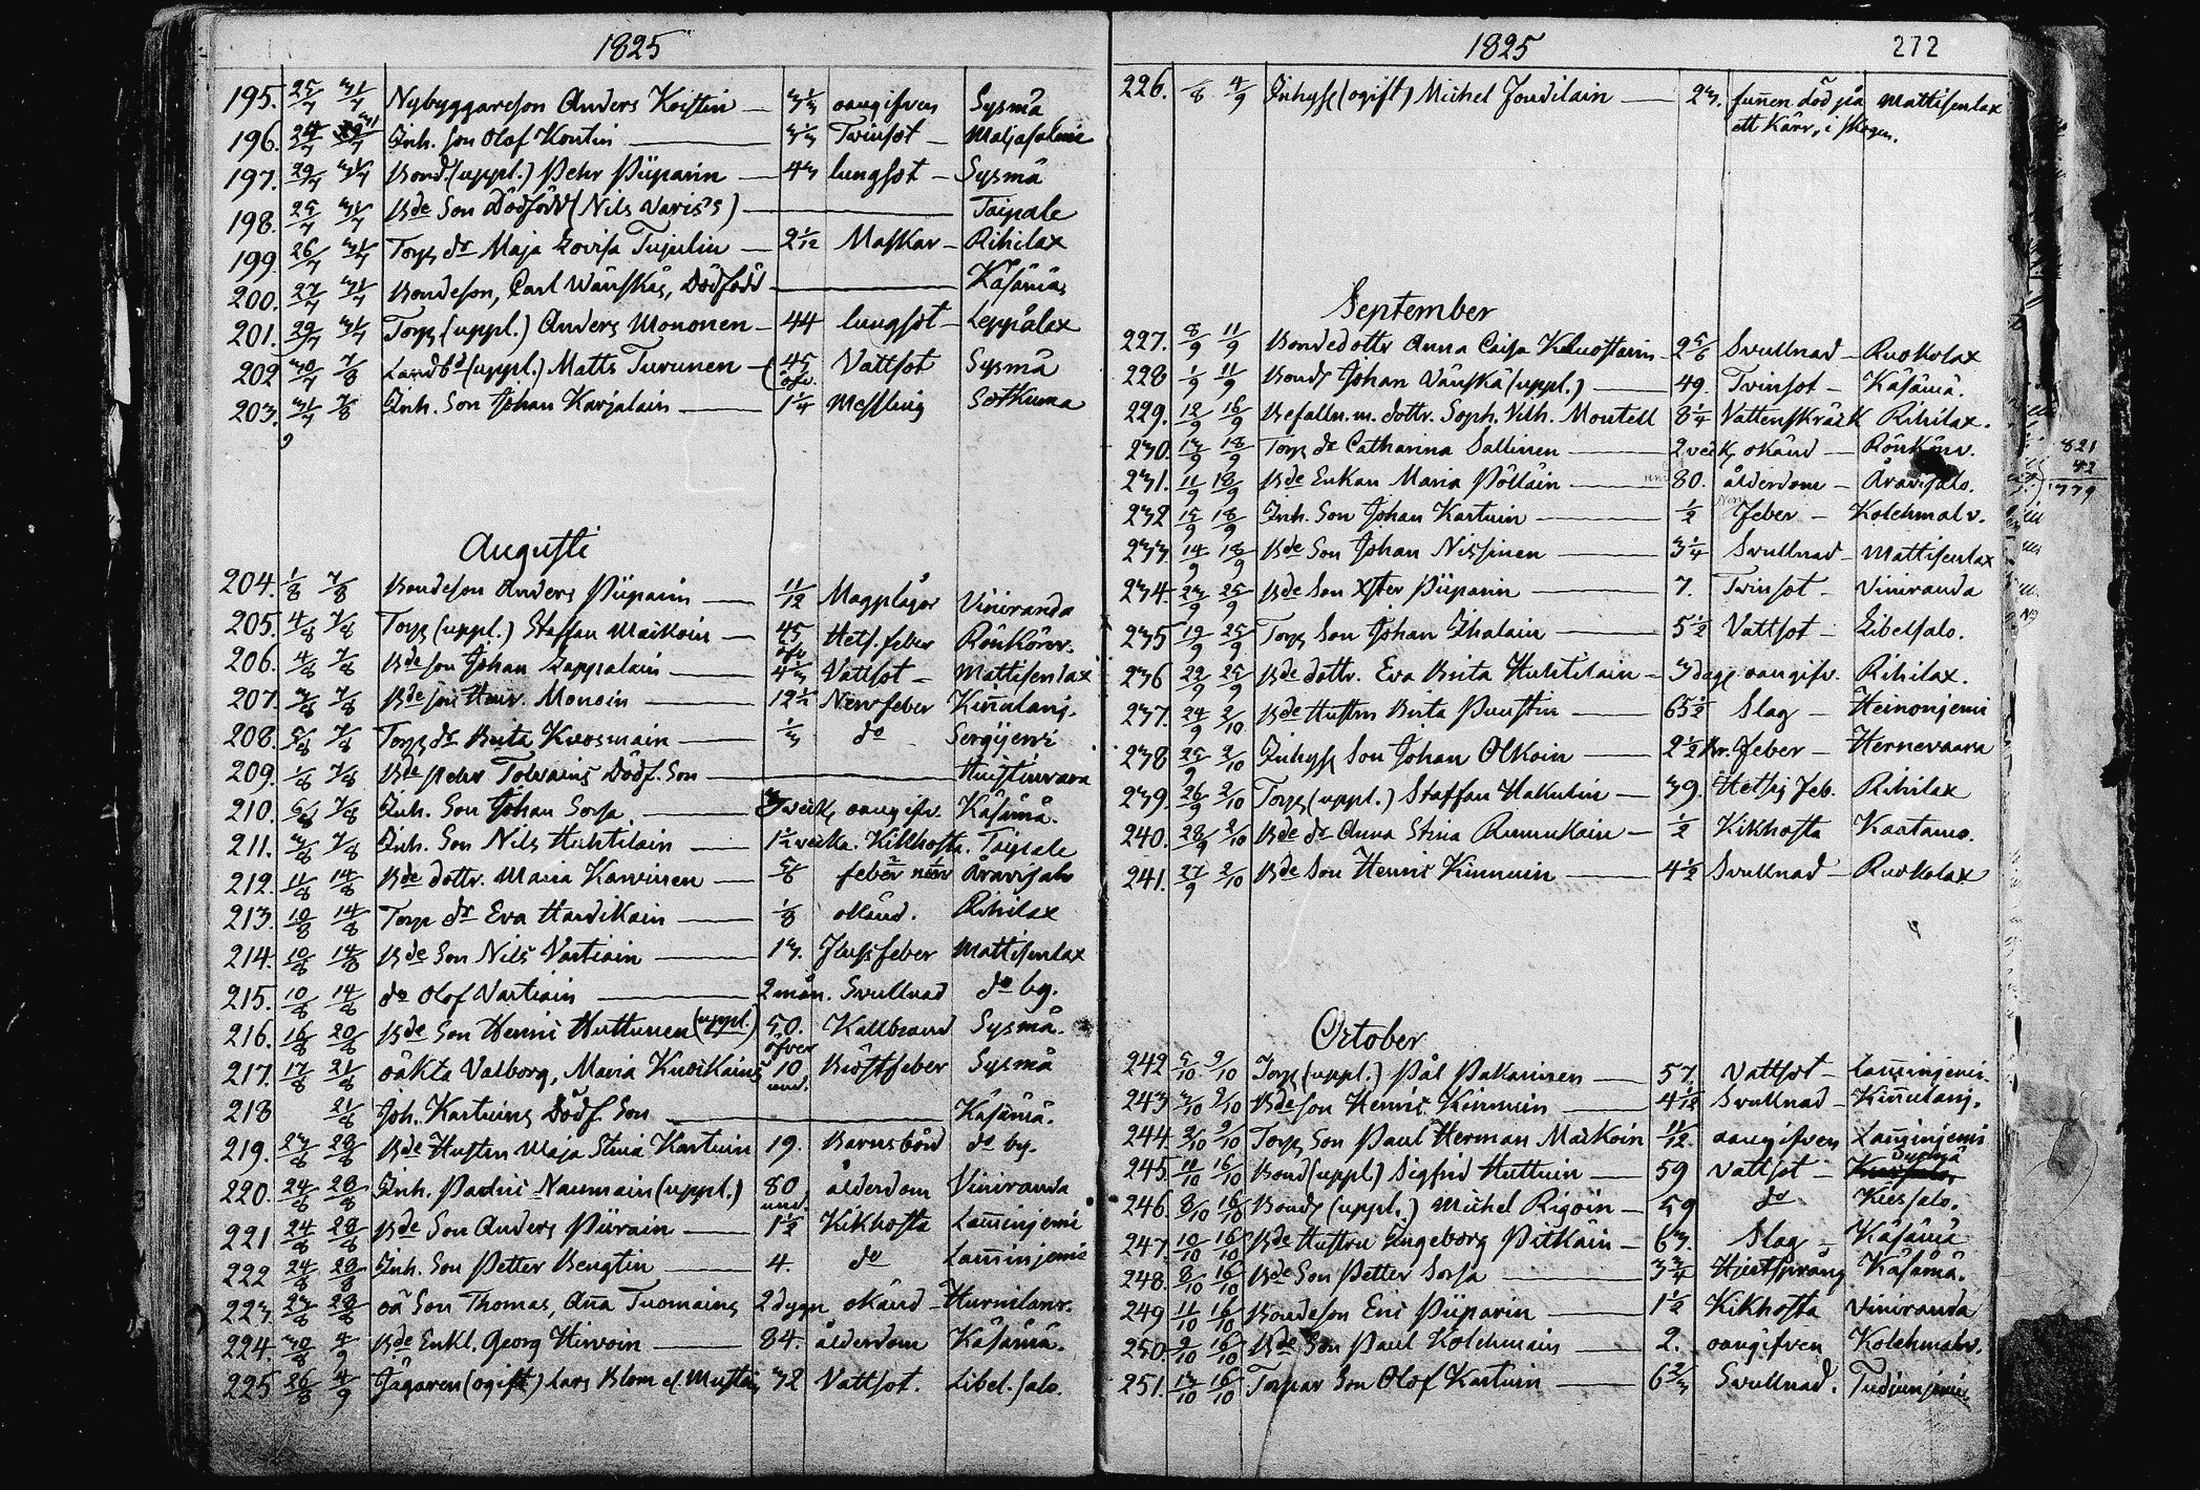 1825
195. 25/7 31/7 Nybyggareson Anders Koistin — 3 1/3 oangifven Sysmä
196. 24/7 31/7 Inh. son Olof Kontin — 3/3 Tvinsot — Maljasalmi
197. 29/7 31/7 Bond. (uppl.) Pehr Piiparin — 43 lungsot — Sysmä
198. 25/7 31/7 Bde Son Dödfödd (Nils Variss) — Taipale
199. 26/7 31/7 Torp. dr Maja Lovisa Tujulin — 2 1/12 Maskar — Rihilax
200. 27/7 31/7 Bondeson, Carl Wänskäs, Dödfödd — Käsämä
201. 29/7 31/7 Torp. (uppl.) Anders Mononen — 44 lungsot — Leppälax
202 30/7 7/8 Landbd (uppl.) Matts Turunen — 45 öfv. Vattsot Sysmä
203. 31/7 7/8 Inh. Son Johan Karjalain — 1 1/4 Messling Sotkuma
Augusti
204. 1/8 7/8 Bondeson Anders Piiparin — 11/12 Magplågor Viniranda
205. 4/8 7/8 Torp. (uppl.) Staffan Maikoin — 45 öfv Hets. feber Rönkönv.
206. 4/8 7/8 Bde son Johan Lappalain — 4 1/3 Vattsot — Mattisenlax
207. 3/8 7/8 Bde son Henr. Monoin — 12 1/2 Nervfeber Kiñulanj.
208. 5/8 7/8 Torp. dr Brita Kuosmain — 1/3 do Sergijervi
209. 1/8 7/8 Bde Pehr Tolvains Dödf. Son — Huistinvara
210. 6/8 7/8 Inh. Son Johan Sorsa. — 3 veck, oangifv. Käsämä.
211. 3/8 7/8 Inh. Son Nils Huhtilain — 1 1/2 vecka. Kikhosta. Taipale
212. 11/8 14/8 Bde dottr. Maria Karvinen — 5/6 feber nerv Aravisalo
213. 10/8 14/8 Torp dr Eva Hardikain — 1/8 okänd. Rihilax
214. 10/8 14/8 Bde Son Nils Vartiain — 13. Flussfeber Mattisenlax
215. 10/8 14/8 do Olof Vartiain — 2 mån. Svullnad do by.
216. 16/8 20/8 Bde Son Henric Huttunen (uppl.) 50. öfver Kallbrand Sysmä.
217. 17/8 21/8 oäkta Valborg, Maria Kuoikains 10 und. Bröstfeber Sysmä
218 21/8 Joh. Kartuins Dödf. Son — Käsämä.
219. 23/8 28/8 Bde Hustru Maja Stina Kartuin 19. Barnsbörd do by.
220. 24/8 28/8 Inh. Padric Naumain (uppl.) 80 und. ålderdom Viniranda
221 24/8 28/8 Bde Son Anders Piirain — 1 1/2 Kikhosta Lam̄injervi
222 24/8 28/8 Inh. Son Petter Bengtin — 4. do Lam̄injervi
223. 23/8 28/8 oä Son Thomas, Aña Tuomains 2 dygn okänd —
224. 30/8 4/9 Bde Enkl. Georg Hirvoin — 84. ålderdom Käsämä.
225 26/8 4/9 Jägaren (ogift) Lars Blom el. Mustoin 32 Vattsot. Libel. salo.
1825 272
226. /8 4/9 Inhys (ogift) Michel Joudilain — 23. fuñen död på Mattisenlax
ett Kärr, i skogen.
September
227. 8/9 11/9 Bondedottr Anna Caisa Kluostarin 2 5/6 Svullnad — Ruokolax
228 1/9 11/9 Bond Johan Vänskä (uppl.) — 49. Tvinsot — Käsämä.
229. 12/9 16/9 Befalln. m. dottr. Soph. Vilh. Montell 8 1/4 Vattenskräck Rihilax.
230. 13/9 18/9 Torp. dr Catharina Sallinen — 2 veck, okänd — Rönkönv.
231. 11/9 18/9 Bde Enkan Maria Pölläin — 80. ålderdom — Aravisalo.
232 15/9 18/9 Inh. Son Johan Kartuin — 1/2 Nerv feber — Kolehmalv.
233 14/9 18/9 Bde Son Johan Nissinen — 3 1/4 Svullnad — Mattisenlax
234. 23/9 25/9 Bde Son Xster Piiparin — 7. Tvinsot — Viniranda
235 19/9 25/9 Torp. Son Johan Ihalain — 5 1/2 Vattsot — Libelsalo.
236 22/9 25/9 Bde dottr. Eva Brita Huhtilain — 3 dag. oangifv. Rihilax.
237. 24/9 2/10 Bde Hustru Brita Puustin — 65 1/2 Slag — Heinonjervi
238 25/9 2/10 Inhys Son Johan Olkoin — 2 1/2 Nr. Feber — Hernevaara
239. 26/9 2/10 Torp. (uppl.) Staffan Hakulin — 39. Hetsig Feb. Rihilax
240. 28/9 2/10 Bde dr Anna Stina Ruunukain — 1/2 Kikhosta Kaatamo.
241. 27/9 2/10 Bde Son Henric Kinnuin — 4 1/2 Svullnad — Ruokolax
October
242 5/10 9/10 Torp. (uppl.) Pål Pakarinen — 57. Vattsot — Lam̄injervi.
243 3/10 9/10 Bde son Henric Kinnuin — 4 1/12 Svullnad — Kiñulanj.
244. 2/10 9/10 Torp. Son Paul Herman Maikoin 11/12. oangifven Lam̄injervi
245. 11/10 16/10 Bond (uppl.) Sigfrid Huttuin — 59 Vattsot — Sysmä
246. 8/10 16/10 Bond (uppl.) Michel Rigoin — 59 do Kiessalo.
247. 10/10 16/10 Bde Hustru Ingeborg Pitkäin — 63. Slag — Käsämä
248. 8/10 16/10 Bde Son Petter Sorsa — 3 3/4 Hjertspräng Käsämä.
249 11/10 16/10 Bondeson Eric Piiparin — 1 1/2 Kikhosta Viniranda
250. 9/10 16/10 Bde Son Paul Kolehmain — 2. oangifven Kolehmalv.
251. 13/10 16/10 Torpar Son Olof Kartuin — 6 2/3 Svullnad.
821
42
779